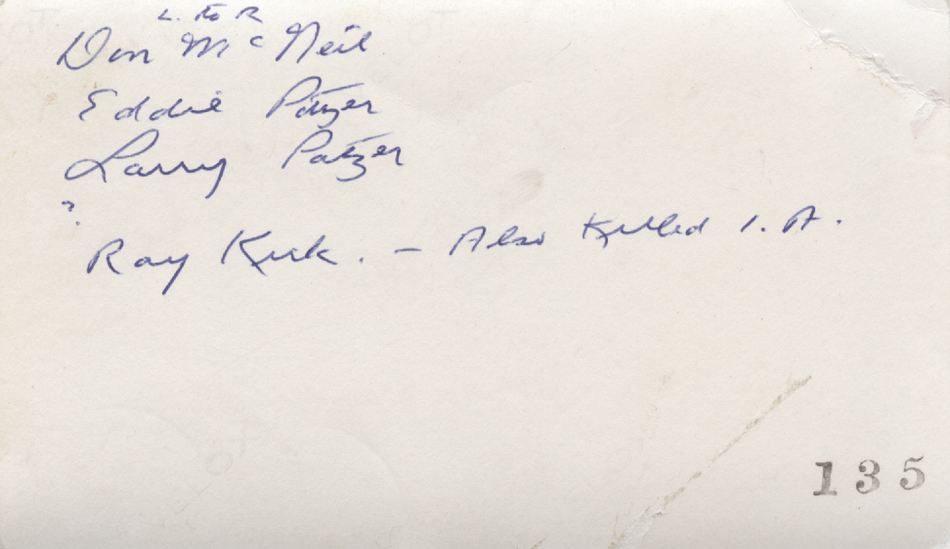 L. to R
Don McNeil
Eddie Patzer
Larry Patzer
?
Ray Kirk. - Also Killed I. A.
135